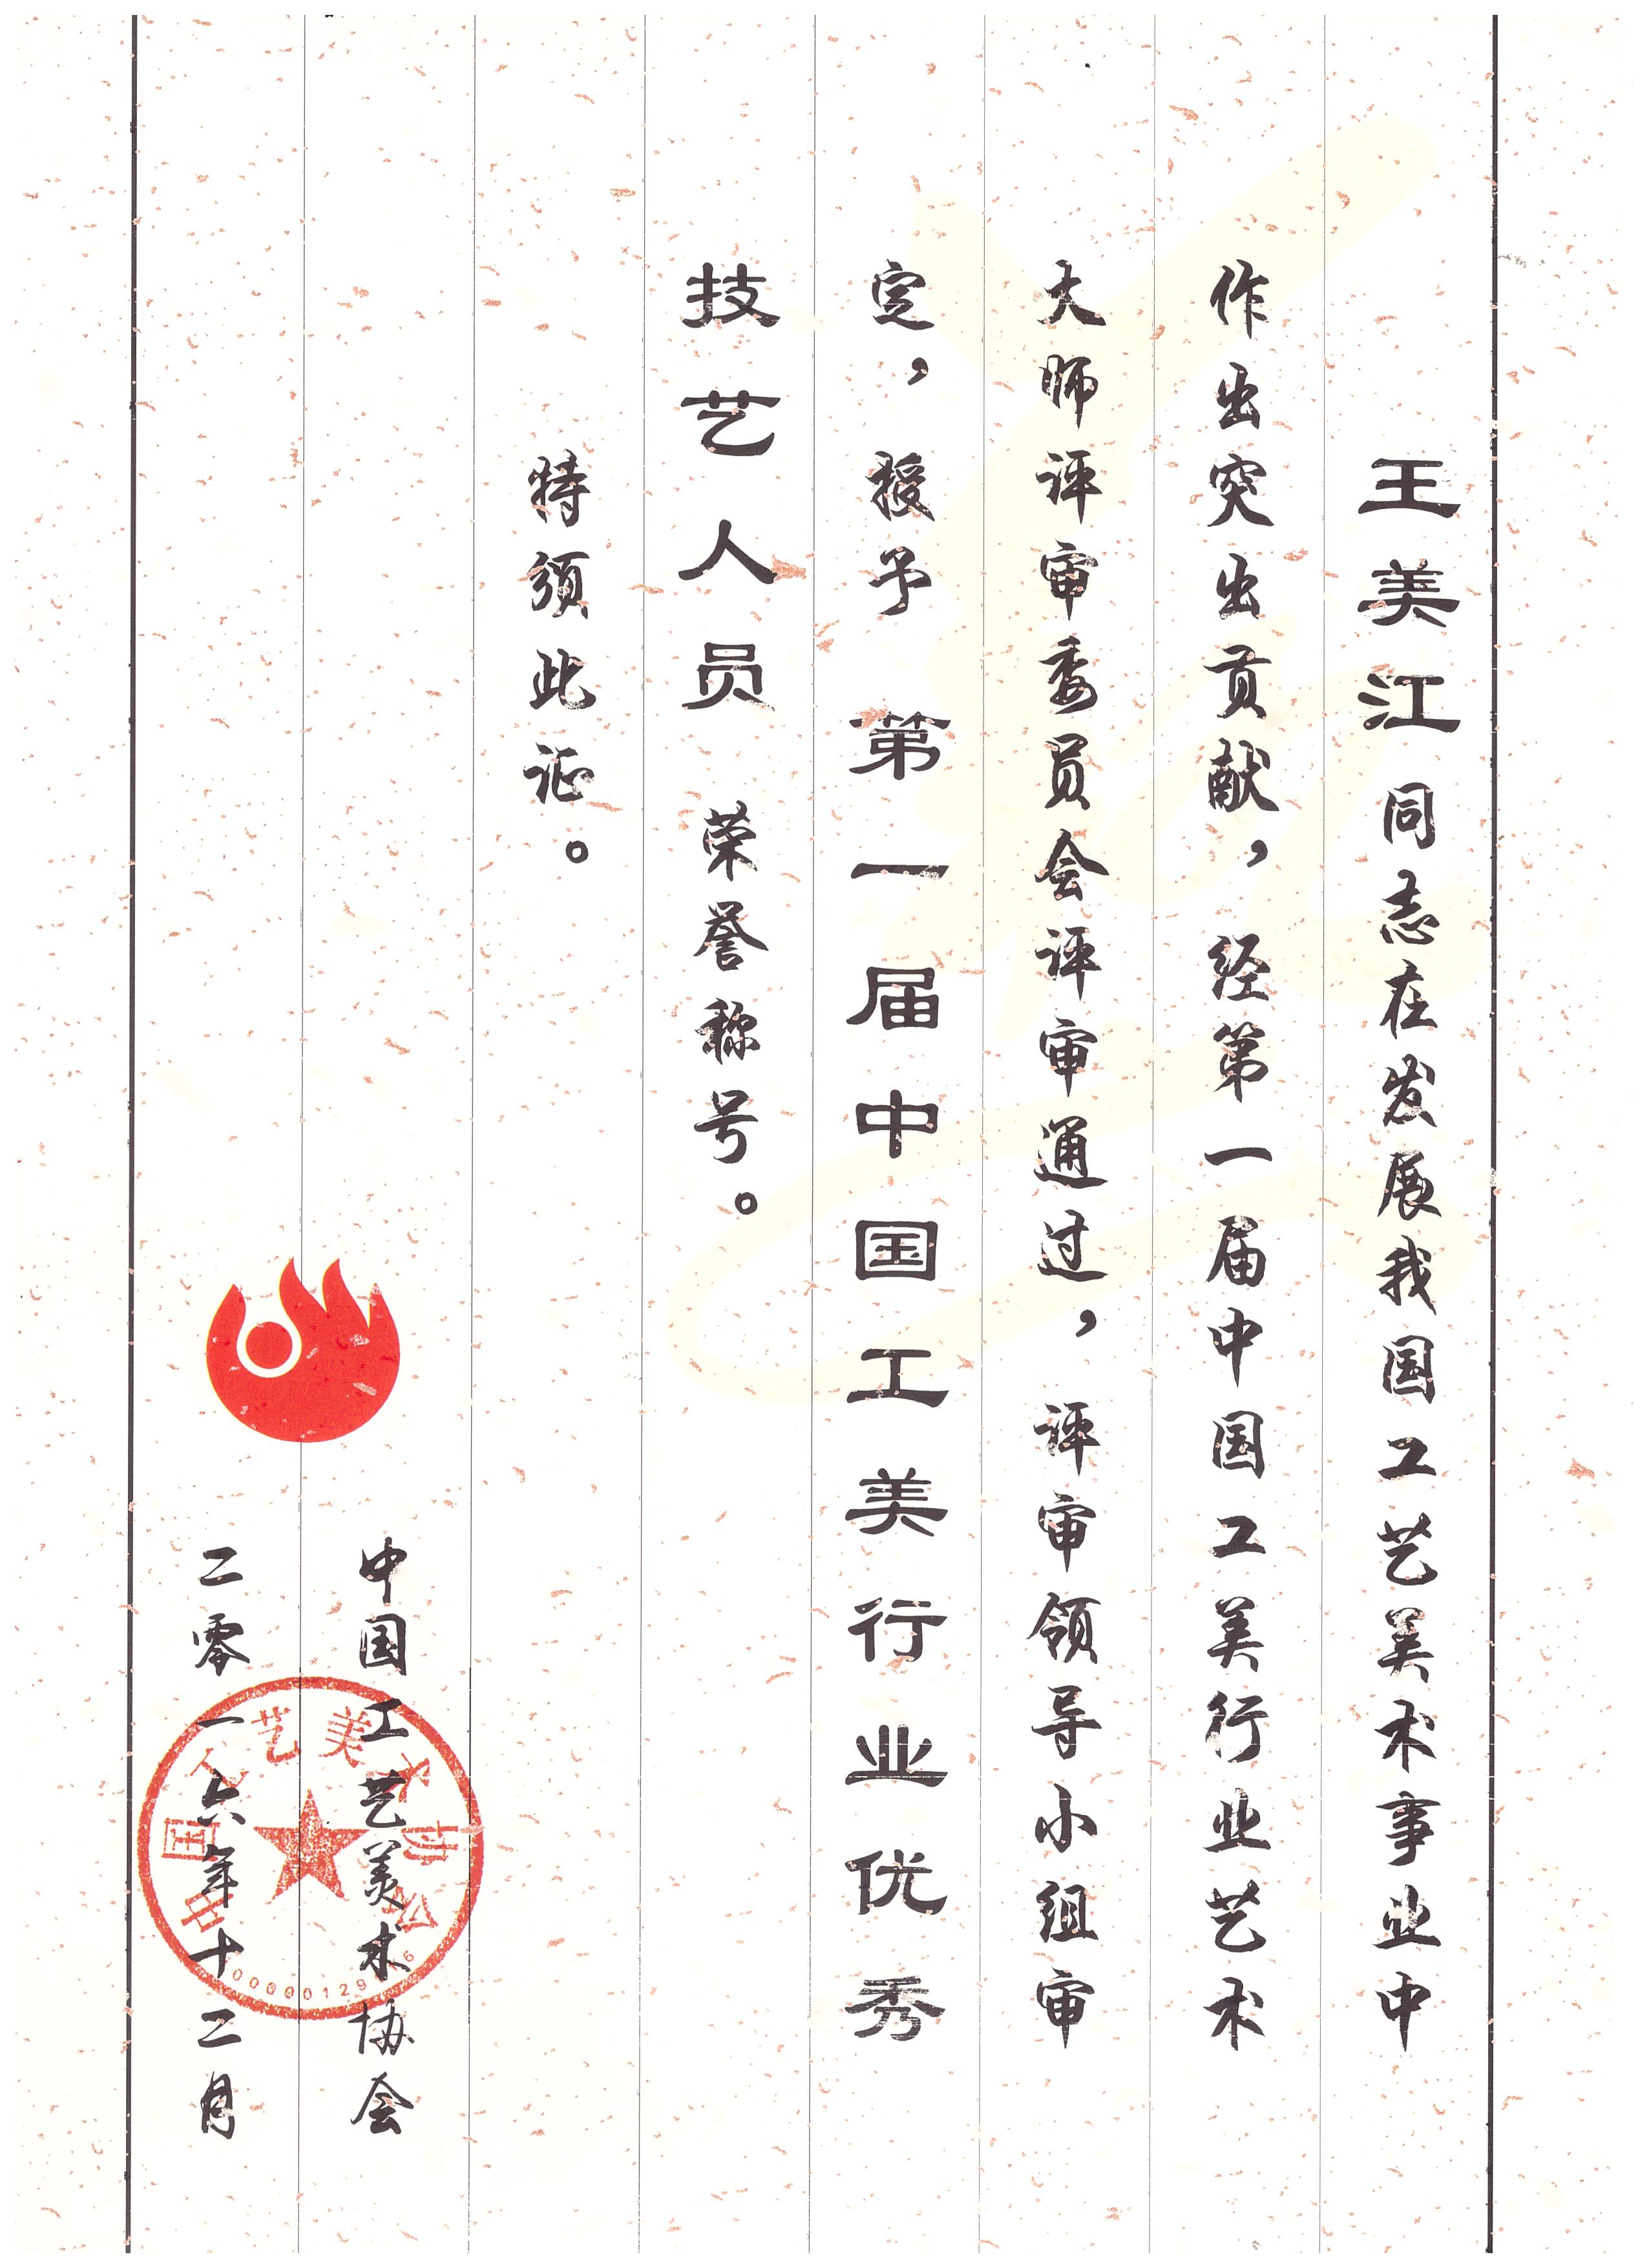 王美江同志在发展我国工艺美术事业中
作出突出贡献，经第一届中国工美行业艺术
大师评审委员会评审通过，评审领导小组审
定，授予 第一届中国工美行业优秀
技艺人员 荣誉称号。
特颁此证。
中国工艺美术协会
二零一六年十二月
中国工艺美术协会